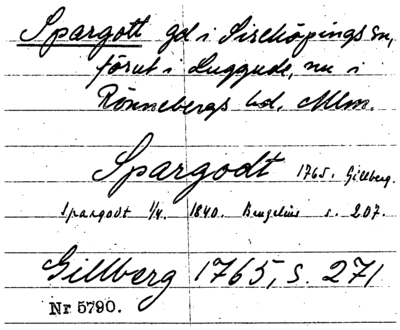 Spargott gd i Sireköpings sn,
förut i Luggude, nu i
Rönnebergs hd. Mlm.
Spargodt 1765. Gillberg.
Spargodt 1/4. 1840. Bengelius s. 207.
Gillberg 1765, s. 271
Nr 5790.